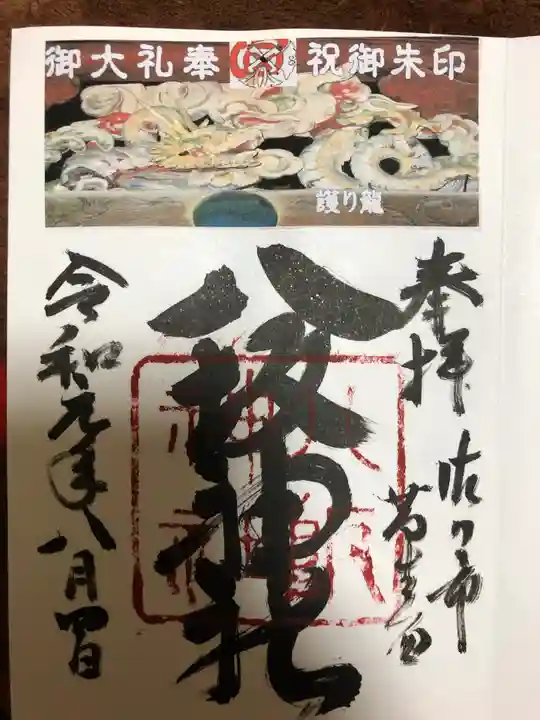 御大礼奉祝御朱印
護り龍
奉拝
八坂神社
令和元年八月四日